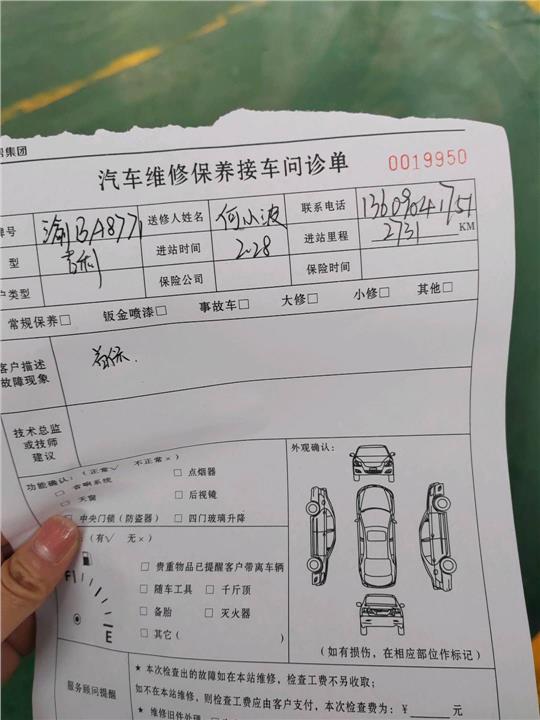 集团
汽车维修保养接车问诊单 0019950
牌号 渝BA8771 送修人姓名 何小波 联系电话 13609041751
型 吉利 进站时间 2.28 进站里程 2731 KM
户类型 保险公司 保险时间
常规保养□ 钣金喷漆□ 事故车□ 大修□ 小修□ 其他□
客户描述
故障现象
首保.
技术总监
或技师
建议
功能确认：（正常√ 不正常×） 外观确认：
□ 音响系统 □ 点烟器
□ 天窗 □ 后视镜
□ 中央门锁（防盗器） □ 四门玻璃升降
（有√ 无×）
F
E
□ 贵重物品已提醒客户带离车辆
□ 随车工具 □ 千斤顶
□ 备胎 □ 灭火器
□ 其它（ ）
（如有损伤，在相应部位作标记）
服务顾问提醒
★ 本次检查出的故障如在本站维修，检查工费不另收取；
如不在本站维修，则检查工费应由客户支付，本次检查费为：￥ 元
★ 维修旧件处理